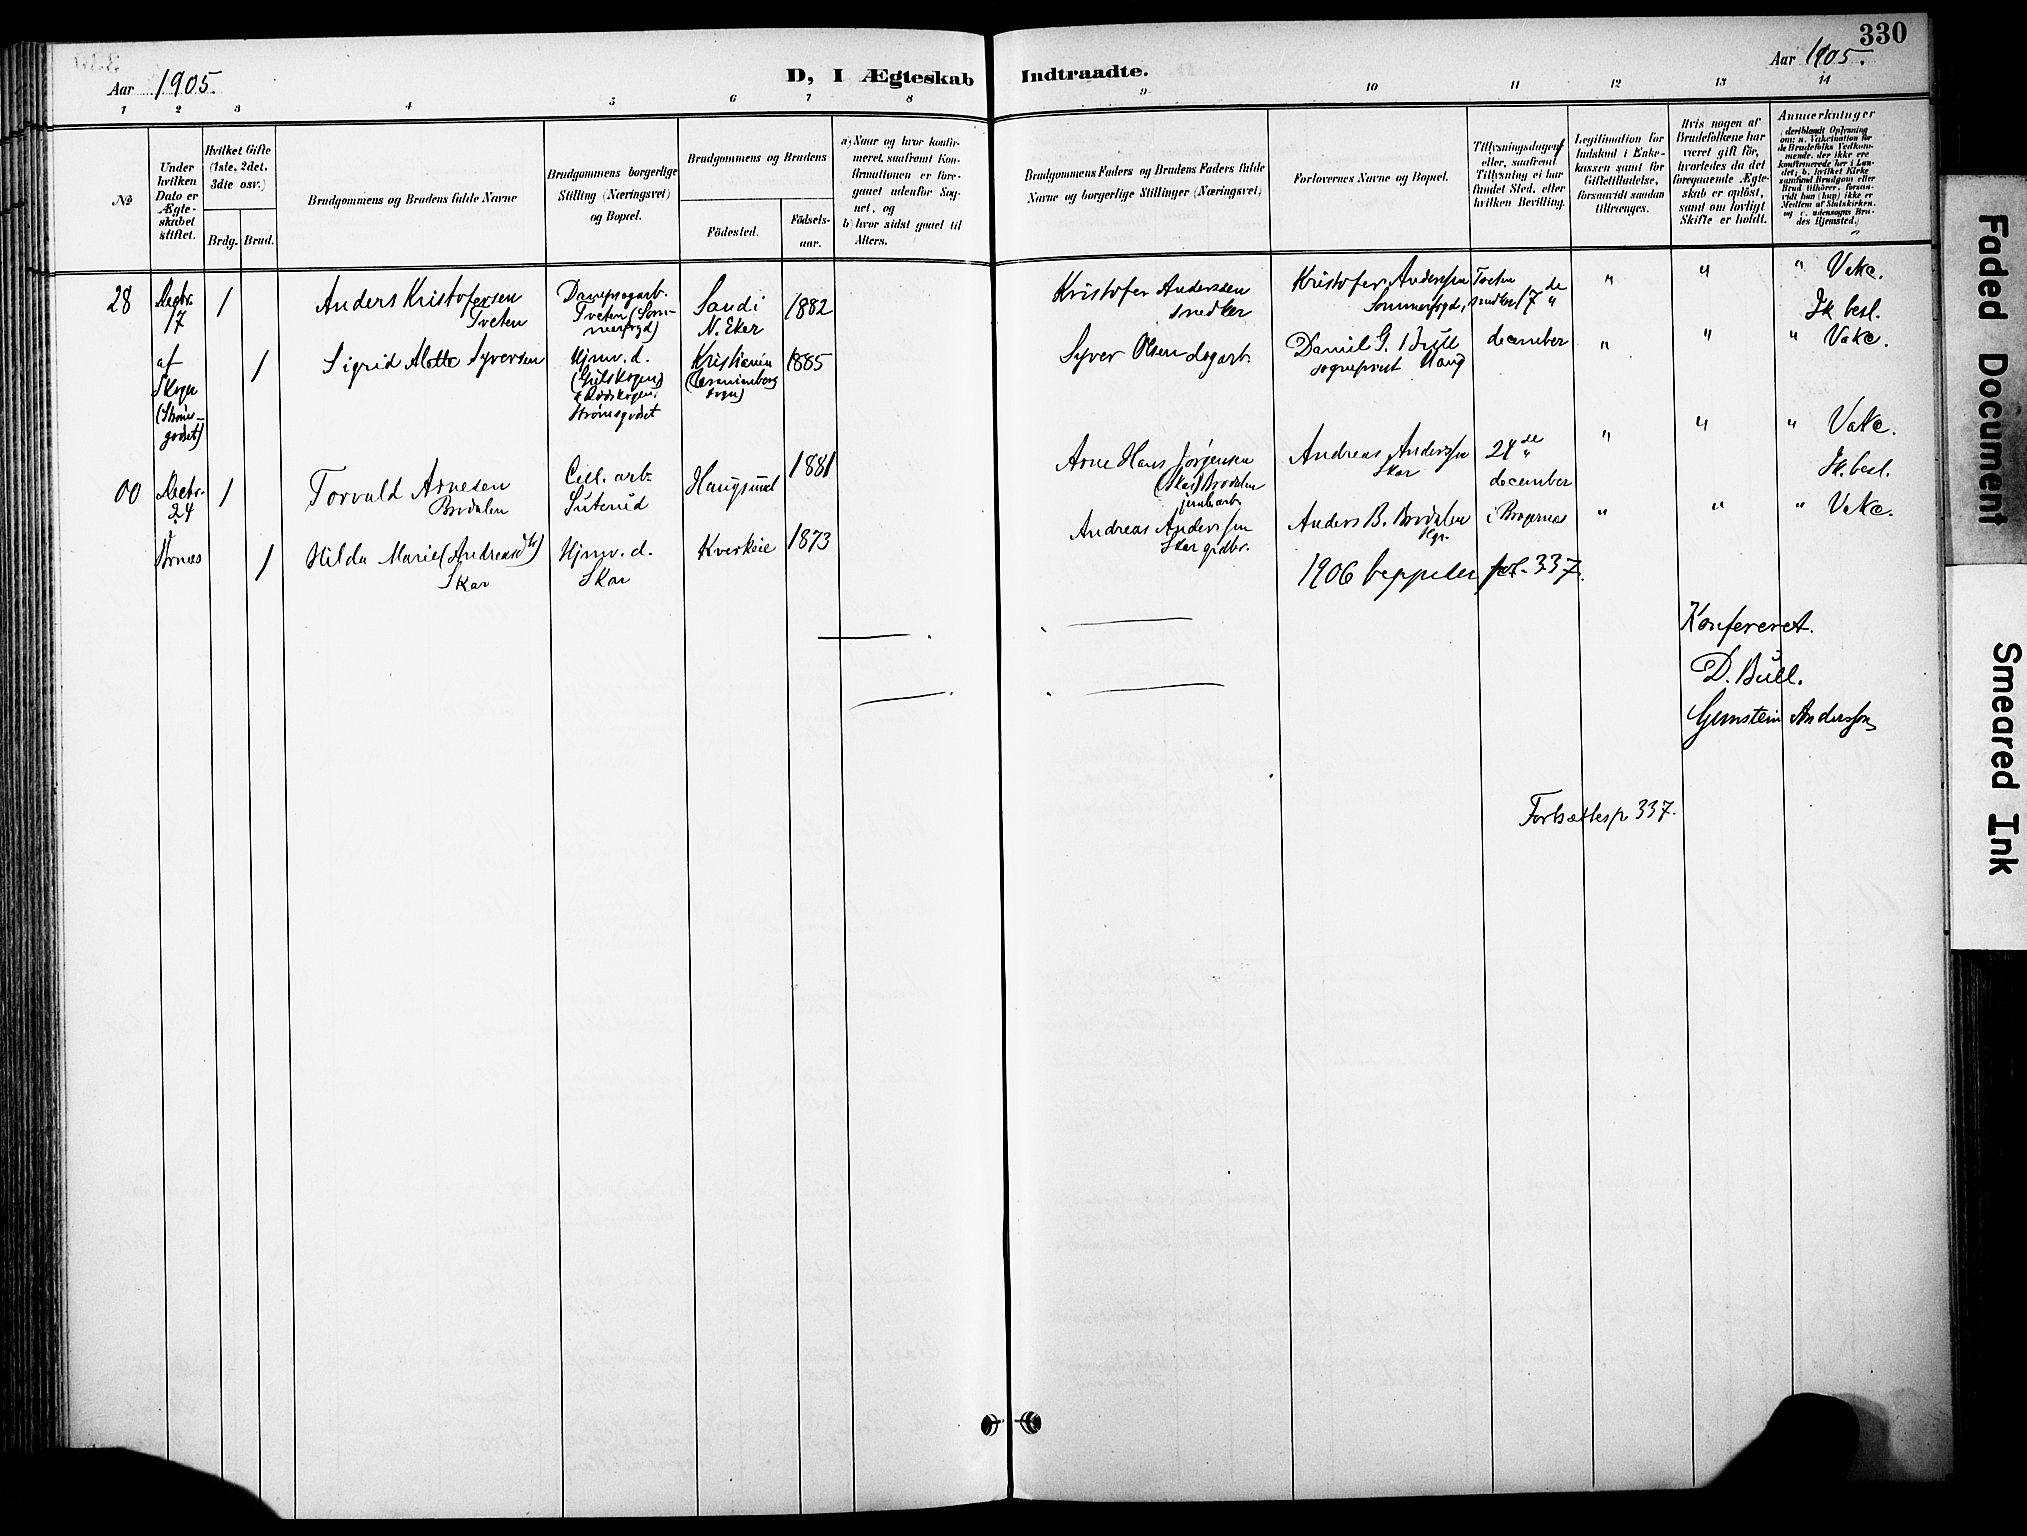 330
Aar 1905.
D, I Ægteskab Indtraadte.
Aar 1905.
1 2 3 4 5 6 7 8 9 10 11 12 13 14
No
Under hvilken Dato er Ægteskabet stiftet.
Hvilket Gifte (1ste, 2det, 3die osv.)
Brdg. Brud.
Brudgommens og Brudens fulde Navne
Brudgommens borgerlige Stilling (Næringsvei) og Bopæl.
Brudgommens og Brudens
Fødested.
Fødselsaar.
a) Naar og hvor konfirmeret, saafremt Konfirmationen er foregaaet udenfor Sognet, og
b) hvor sidst gaaet til Alters.
Brudgommens Faders og Brudens Faders fulde Navne og borgerlige Stillinger (Næringsvei)
Forlovernes Navne og Bopæl.
Tillysningsdagen eller, saafremt Tillysning ei har fundet Sted, efter hvilken Bevilling.
Legitimation for Indskud i Enkekassen samt for Giftetilladelse, forsaavidt saadan tiltrænges.
Hvis nogen af Brudefolkene har været gift før, hvorledes da det foregaaende Ægteskab er opløst, samt om lovligt Skifte er holdt.
Anmærkninger
28 Decbr. 17 1 Anders Kristofersen Tveten
Tveten (Sommerfryd)
Sand i N. Eker 1882
Kristofer Anderssen snedker
Kristofer Anderssen Tveten Sommerfryd, snedker
17 de " december
" " " Vakc.
Ik besl.
af Skoger (Strømsgodset)
1 Sigrid Alette Syversen
Hjmv. d.
Strømsgodset
Kristiania
1885
Syver Olsen dagarb.
Daniel G. Bull sogneprest Haug
" " " Vakc.
00 Decbr. 24 1 Torvald Arnesen Brodalen
Cell. arb.
Haugsund 1881
Arne Hans Jørgensen (Skar) Brodalen
Andreas Anderssen Skar
24 de " december
" " " Vakc.
Ik. besl.
1 Hilda Marie (Andreasd tr) Skar
Hjmv. d. Skar
1873
Andreas Anderssen Skar grdbr.
Anders B. Brodalen
i Bragernes
" " " Vakc.
1906 fol. 337.
Konfereret.
D. Bull.
Anderssen
Fortsættes p 337.
Faded Document
Smeared Ink